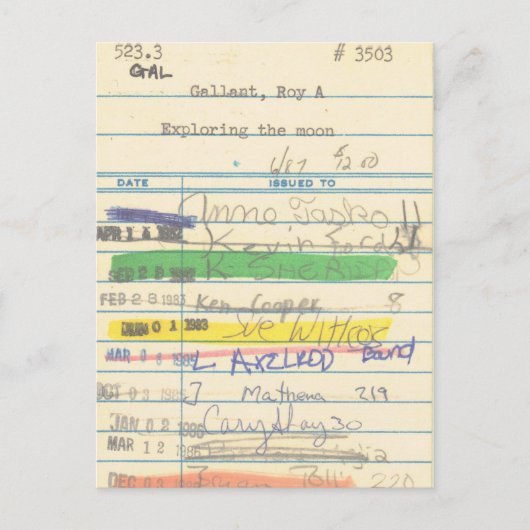 523.3 # 3503
GAL
Gallant, Roy A
Exploring the moon
6/87 $12.00
DATE ISSUED TO
Anne Tasko 11
APR 1 4 1982 Kevin Fords
SEP 2 8 K. SHERIDAN
FEB 2 3 1983 Ken Cooper 8
JUN 0 1 1983 Sue Wittcos
MAR 0 6 1985 L AXELROD Bound
OCT 0 3 J Mathena 219
JAN 0 2 1986 Cary Hay 30
MAR 1 2 1986
DEC 0 3 Brian 220